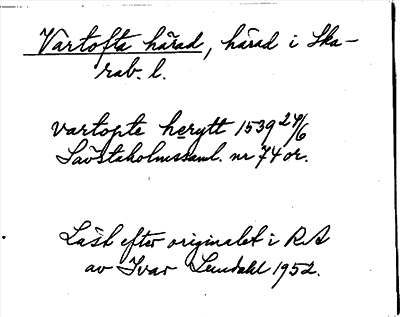 Vartofta härad, härad i Ska-
rab. l.
vartopte herytt 1539 24/6
Sävstaholmssaml. nr 74 or.
Läst efter originalet i RA
av Ivar Lundahl 1952.